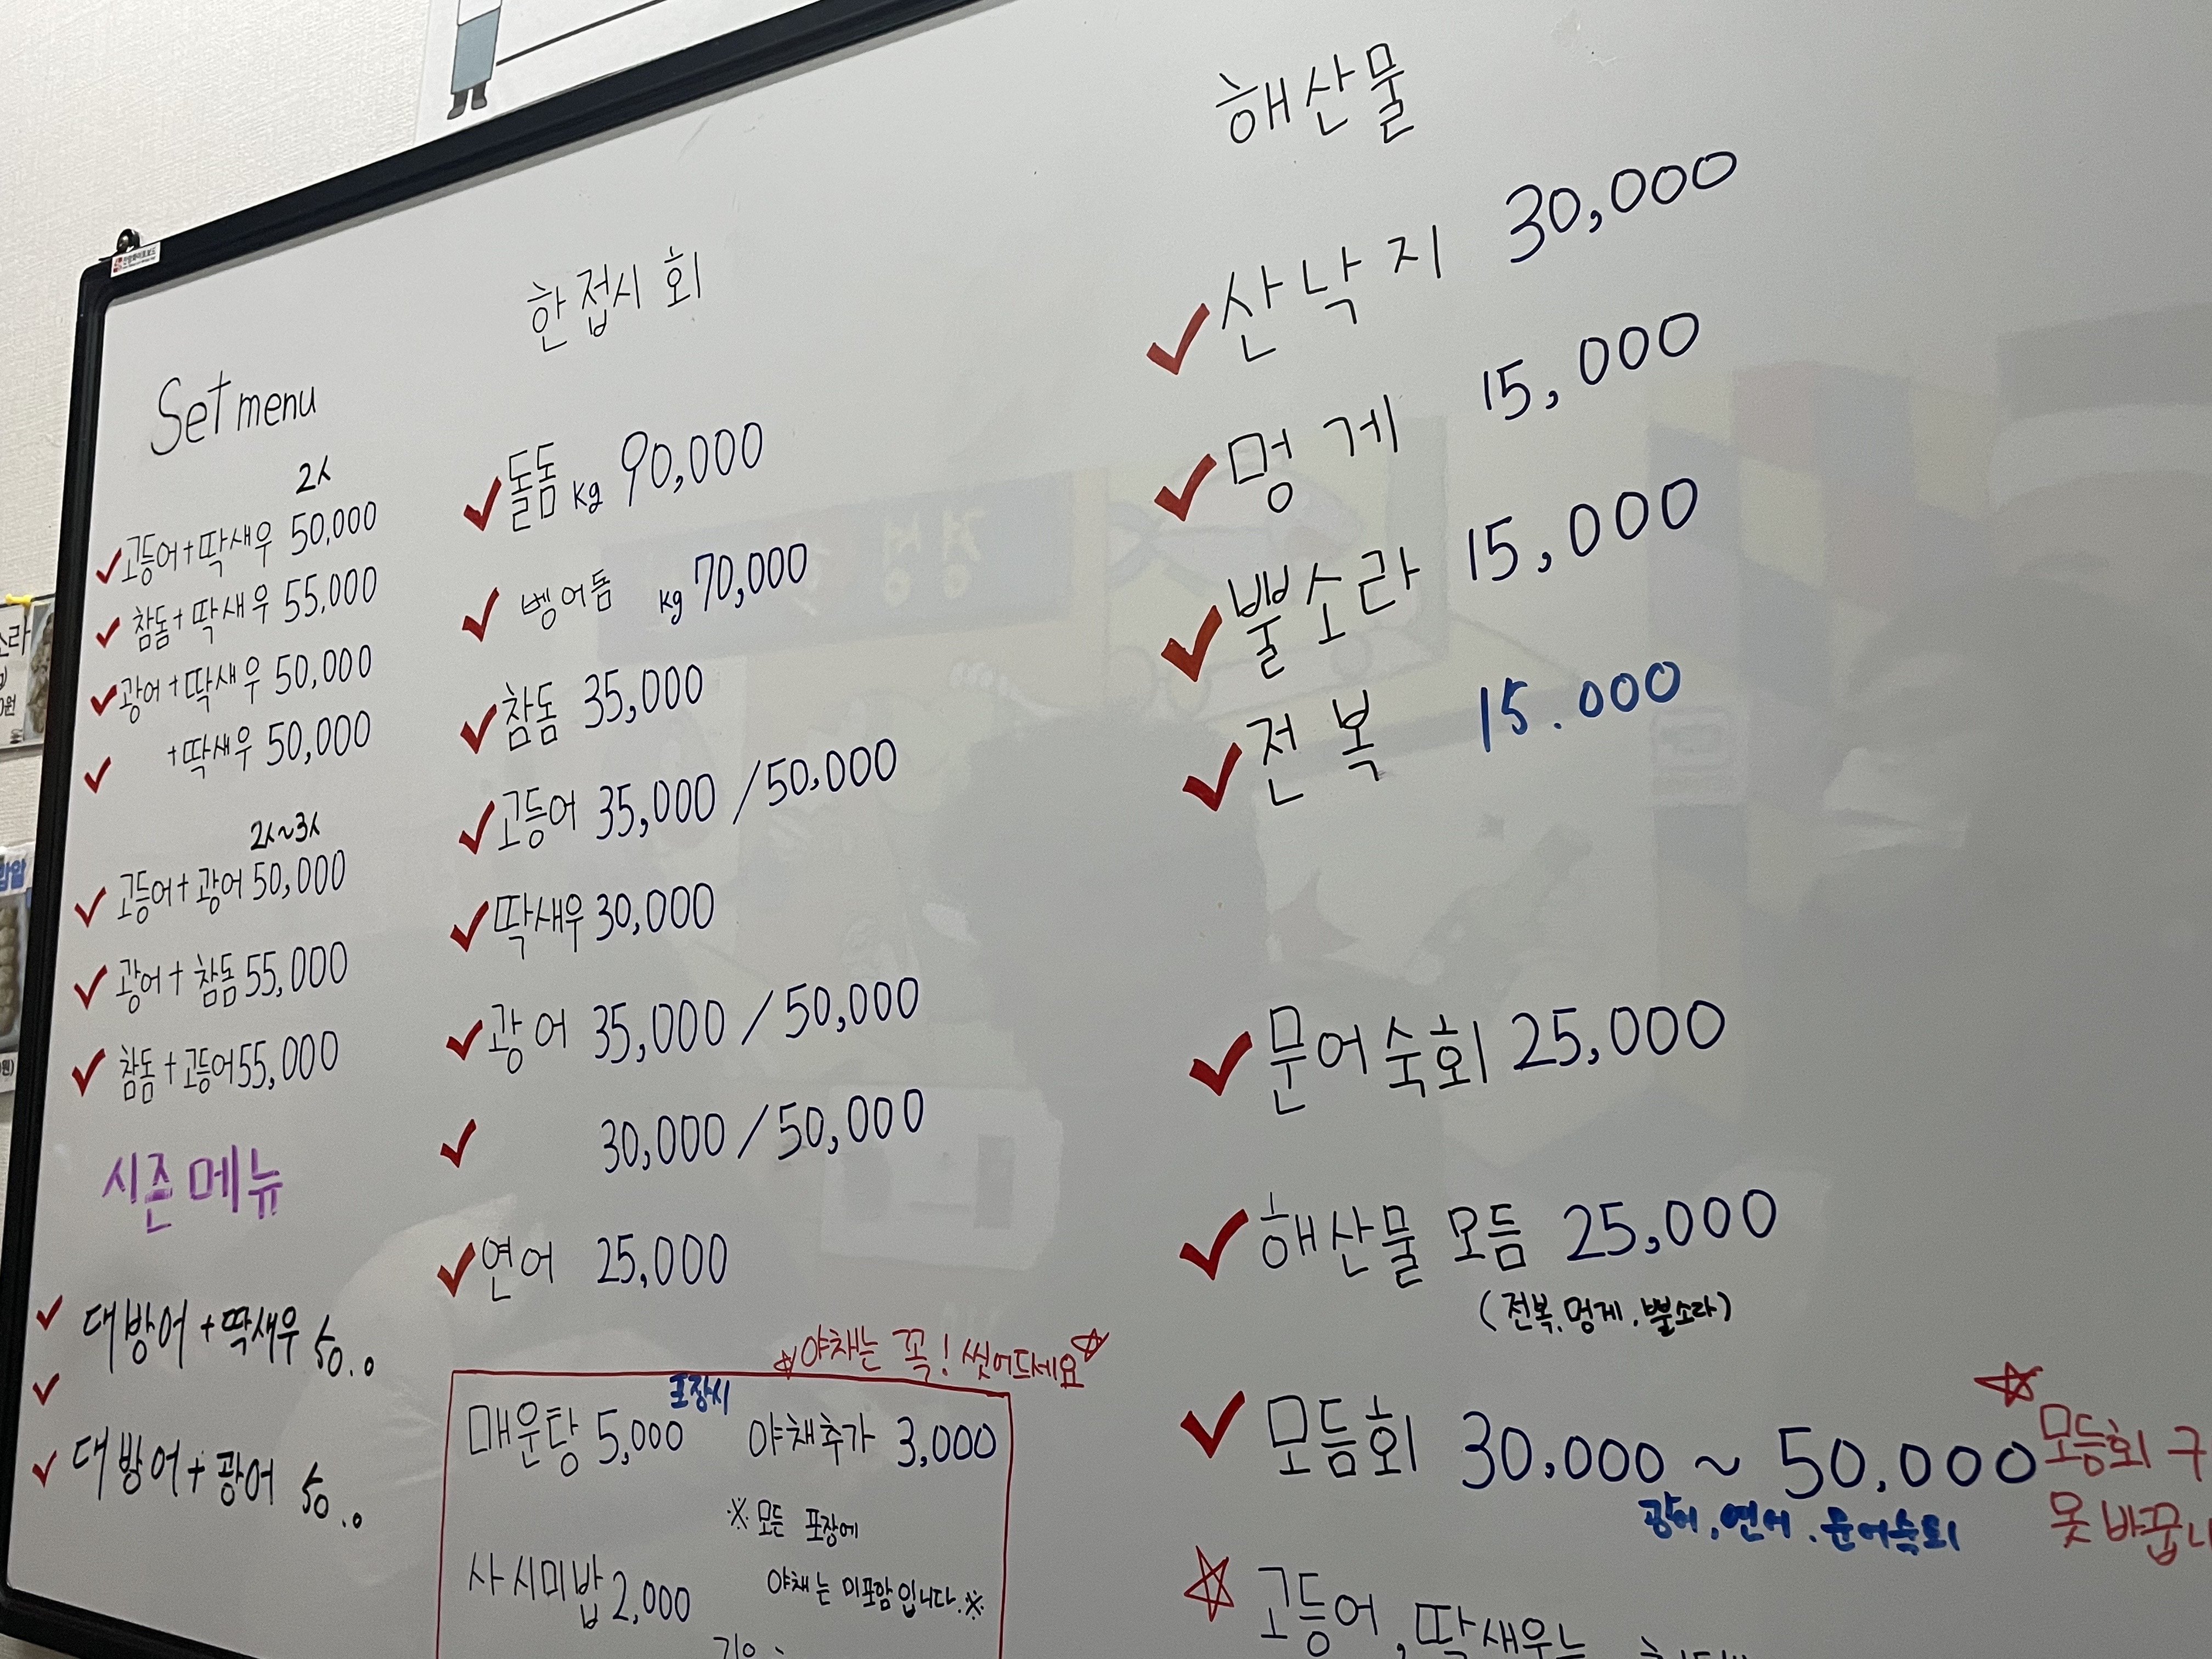 Set menu
2人
고등어+딱새우 50,000
참돔+딱새우 55,000
광어+딱새우 50,000
+딱새우 50,000
2人~3人
고등어+광어 50,000
광어+참돔 55,000
참돔+고등어 55,000
시즌메뉴
대방어+딱새우 50..0
대방어+광어 50..0
한접시 회
돌돔 kg 90,000
벵어돔 kg 70,000
참돔 35,000
고등어 35,000/50,000
딱새우 30,000
광어 35,000/50,000
30,000/50,000
연어 25,000
☆야채는 꼭! 씻어드세요☆
포장시
매운탕 5,000 야채추가 3,000
※모든 포장에
야채는 미포함입니다.※
사시미밥 2,000
해산물
산낙지 30,000
멍게 15,000
뿔소라 15,000
전복 15.000
문어숙회 25,000
해산물 모듬 25,000
(전복.멍게.뿔소라)
모듬회 30,000~50,000
광어.연어.문어숙회
☆모듬회 구
못 바꿉니
☆고등어,딱새우는
소라